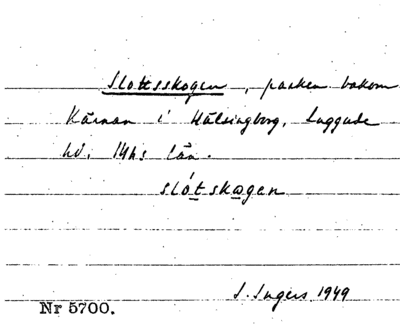 Slottsskogen, parken bakom
Kärnan i Hälsingborg, Luggude
hd. Mhs län.
slótskogen
I. Ingers 1949
Nr 5700.